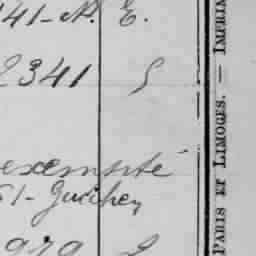 141-N. E.
2341 S
exempté
51- Guichen
PARIS ET LIMOGES. — IMPRIM